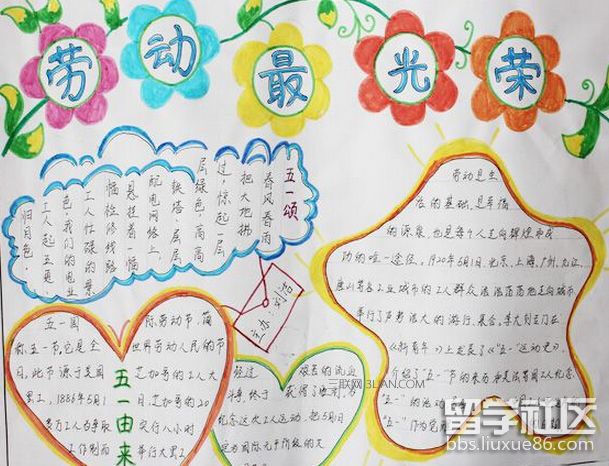 劳动最光荣
五一颂
春风春雨
把大地拂
过，惊起一层
层绿色，高高
铁塔，层层
配电网络上，
悬挂着一幅
幅检修线路
工人忙碌的景
色，我们的电业
工人起五更
归日色
主办：刘浩
五一由来
五一国
际劳动节，简
称五一节，它是全
世界劳动人民的节
日。此节源于美国
芝加哥的工人大
罢工，1886年5月1
芝加哥的20
多万工人为争取
实行八小时
工作制而
举行大罢工
经过
艰苦的流血
斗争，终于
获得了胜利，为
纪念这次工人运动，
把5月1
定为国际无产阶级的大
劳动是生
存的基础，是幸福
的源泉，也是每个人走向辉煌和成
功的唯一途径。1920年5月1日，北京、上海、广州、九江、
唐山等各工业城市的工人群众浩浩荡荡地走向城市
举行了声势浩大的游行、集会。李大钊专门在
《新青年》上发表了《“五一”运动史》，
介绍了“五一”节的来历和美法等国工人纪念
“五一”的活动
“五一”作为
三联网 3LIAN.COM
留学社区
bbs.liuxue86.com